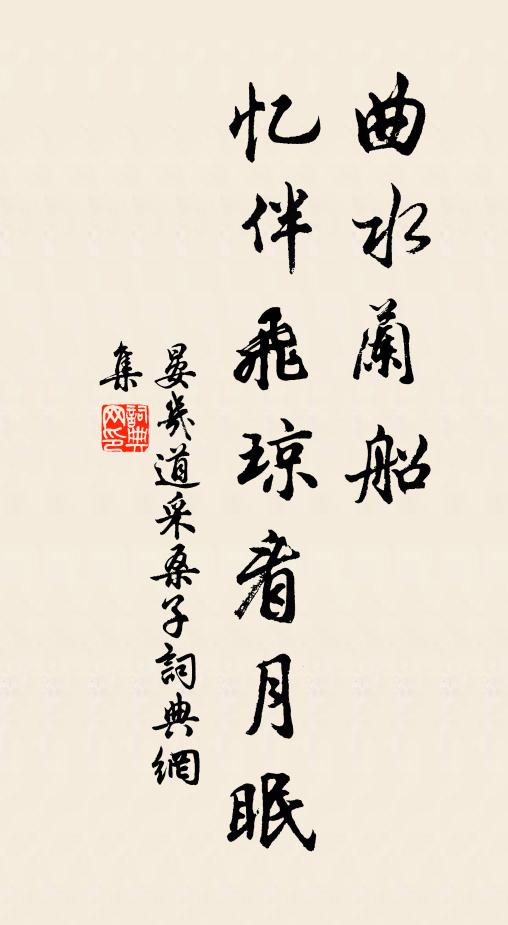 曲水蘭船
忆伴飛琼看月眠
晏幾道采桑子詞典網
集
詞典网印